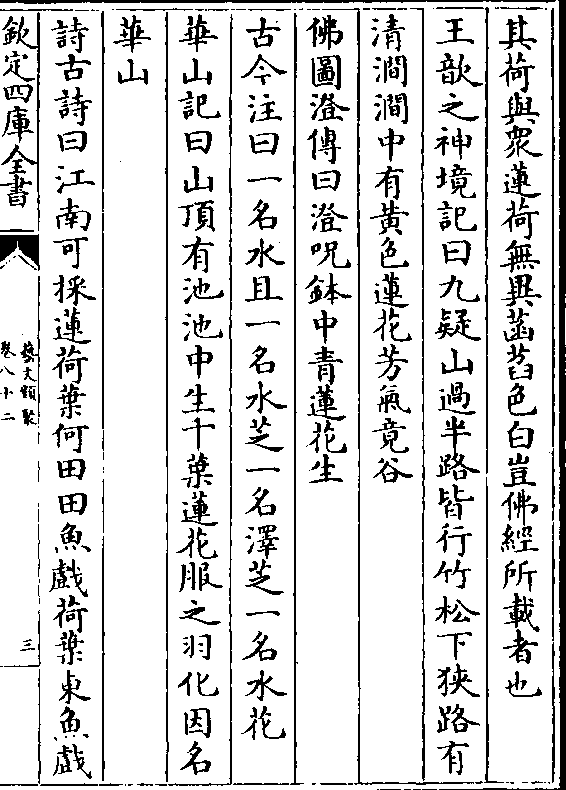 其荷與衆蓮荷無異菡萏色白豈佛經所載者也
王歆之神境記曰九疑山過半路皆行竹松下狹路有
清澗澗中有黄色蓮花芳氣竟谷
佛圖澄傳曰澄呪鉢中青蓮花生
古今注曰一名水且一名水芝一名澤芝一名水花
華山記曰山頂有池池中生千葉蓮花服之羽化因名
華山
詩古詩曰江南可採蓮荷葉何田田魚戲荷葉東魚戲
欽定四庫全書
藝文類聚
卷八十二
三